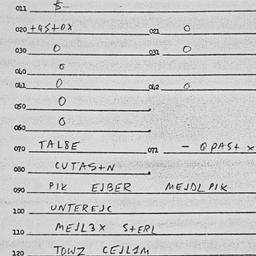 011 5
020 +a5+0x 021 0
030 0 031 0
040 0
041 0 042 0
050 0
060 0
070 TAL8E 071 - QPAS+ x
080 CUTAS+N
090 PIK EJBER MEJDLPIK
100 UNTEREJC
110 MEJL3X S+ERL
120 TOWZ CEJL1M